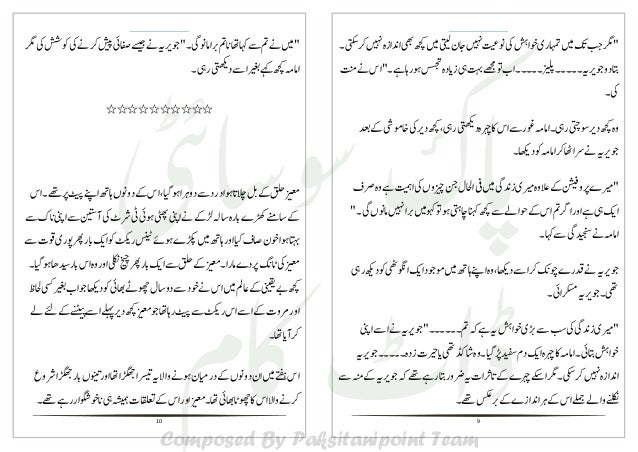 "مگر جب تک میں تمہاری خواہش کی نوعیت نہیں جان لیتی میں کچھ بھی اندازہ نہیں کر سکتی۔
بتا دو جویریہ۔۔۔۔۔ پلیز۔۔۔۔۔ اب تو مجھے بہت ہی زیادہ تجسس ہو رہا ہے۔" اس نے منت
کی۔
وہ کچھ دیر سوچتی رہی۔ امامہ غور سے اس کا چہرہ دیکھتی رہی، کچھ دیر کی خاموشی کے بعد
جویریہ نے سر اٹھا کر امامہ کو دیکھا۔
"میرے پروفیشن کے علاوہ میری زندگی میں فی الحال جن چیزوں کی اہمیت ہے وہ صرف
ایک ہی ہے اور اگر تم اس کے حوالے سے کچھ کہنا چاہتی ہو تو کہو میں برا نہیں مانوں گی۔"
امامہ نے سنجیدگی سے کہا۔
جویریہ نے قدرے چونک کر اسے دیکھا، وہ اپنے ہاتھ میں موجود ایک انگوٹھی کو دیکھ رہی
تھی۔ جویریہ مسکرائی۔
"میری زندگی کی سب سے بڑی خواہش یہ ہے کہ تم۔۔۔۔۔۔" جویریہ نے اسے اپنی
خواہش بتائی۔ امامہ کا چہرہ ایک دم سفید پڑ گیا۔ وہ شاکڈ تھی یا حیرت زدہ۔۔۔۔۔ جویریہ
اندازہ نہیں کر سکی۔ مگر اسکے چہرے کے تاثرات یہ ضرور بتا رہے تھے کہ جویریہ کے منہ سے
نکلنے والے جملے اس کے ہر اندازے کے برعکس تھے۔
9
"میں نے تم سے کہا تھا نا تم برا مانو گی۔" جویریہ نے جیسے صفائی پیش کرنے کی کوشش کی مگر
امامہ کچھ کہے بغیر اسے دیکھتی رہی۔
☆☆☆☆☆☆☆☆☆☆
معیز حلق کے بل چلاتا ہوا درد سے دوہرا ہو گیا، اس کے دونوں ہاتھ اپنے پیٹ پر تھے۔ اس
کے سامنے کھڑے بارہ سالہ لڑکے نے اپنی پھٹی ہوئی ٹی شرٹ کی آستین سے اپنی ناک سے
بہتا ہوا خون صاف کیا اور ہاتھ میں پکڑے ہوئے ٹینس ریکٹ کو ایک بار پھر پوری قوت سے
معیز کی ٹانگ پر دے مارا۔ معیز کے حلق سے ایک بار پھر چیخ نکلی اور وہ اس بار سیدھا ہو گیا۔
کچھ بے یقینی کے عالم میں اس نے خود سے دو سال چھوٹے بھائی کو دیکھا جو اب بغیر کسی لحاظ
اور مروت کے اسے اس ریکٹ سے پیٹ رہا تھا جو معیز کچھ دیر پہلے اسے پیٹنے کے لئے لے
کر آیا تھا۔
اس ہفتے میں ان دونوں کے درمیان ہونے والا یہ تیسرا جھگڑا تھا اور تینوں بار جھگڑا شروع
کرنے والا اس کا چھوٹا بھائی تھا۔ معیز اور اس کے تعلقات ہمیشہ ہی ناخوشگوار رہے تھے۔
10
پاک سوسائٹی
ڈاٹ کام
Composed By Paksitanipoint Team